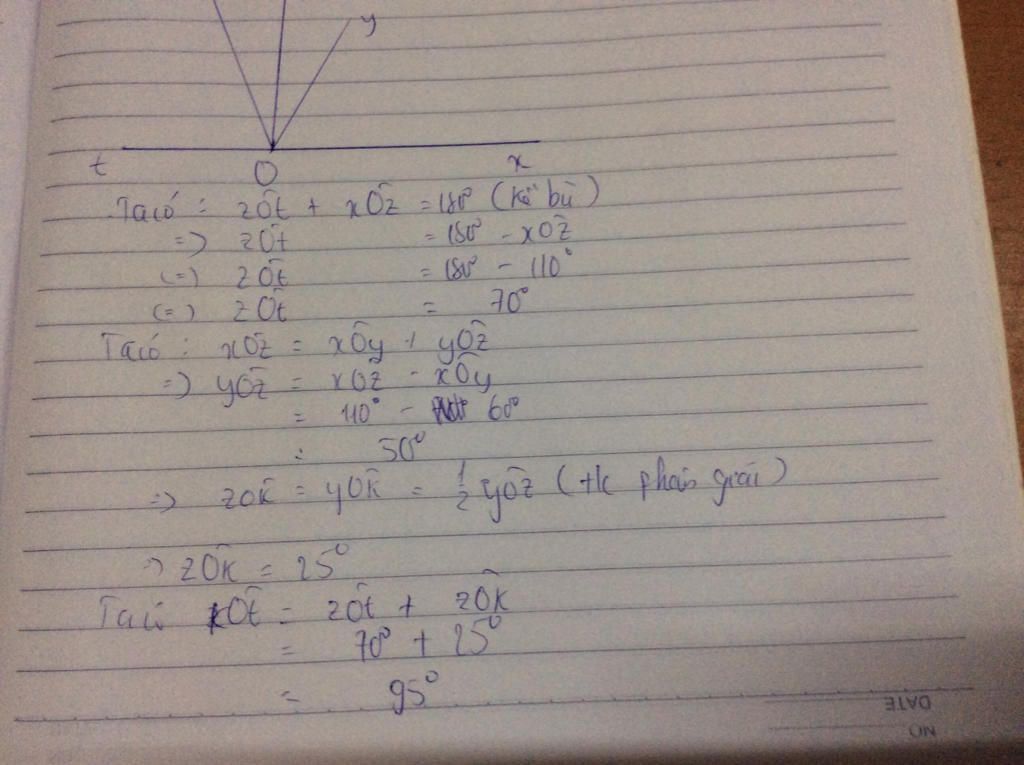 y
t
O
x
Ta có : zÔt + xÔz = 180° (kề bù)
=) zÔt = 180° - xÔz
(=) zÔt = 180° - 110°
(=) zÔt = 70°
Ta có : xÔz = xÔy + yÔz
=) yÔz = xÔz - xÔy
= 110° - 60°
= 50°
=) zÔk = yÔk = 1/2 yÔz (t/c phân giác)
=) zÔk = 25°
Ta có kÔt = zÔt + zÔk
= 70° + 25°
= 95°
DATE
NO